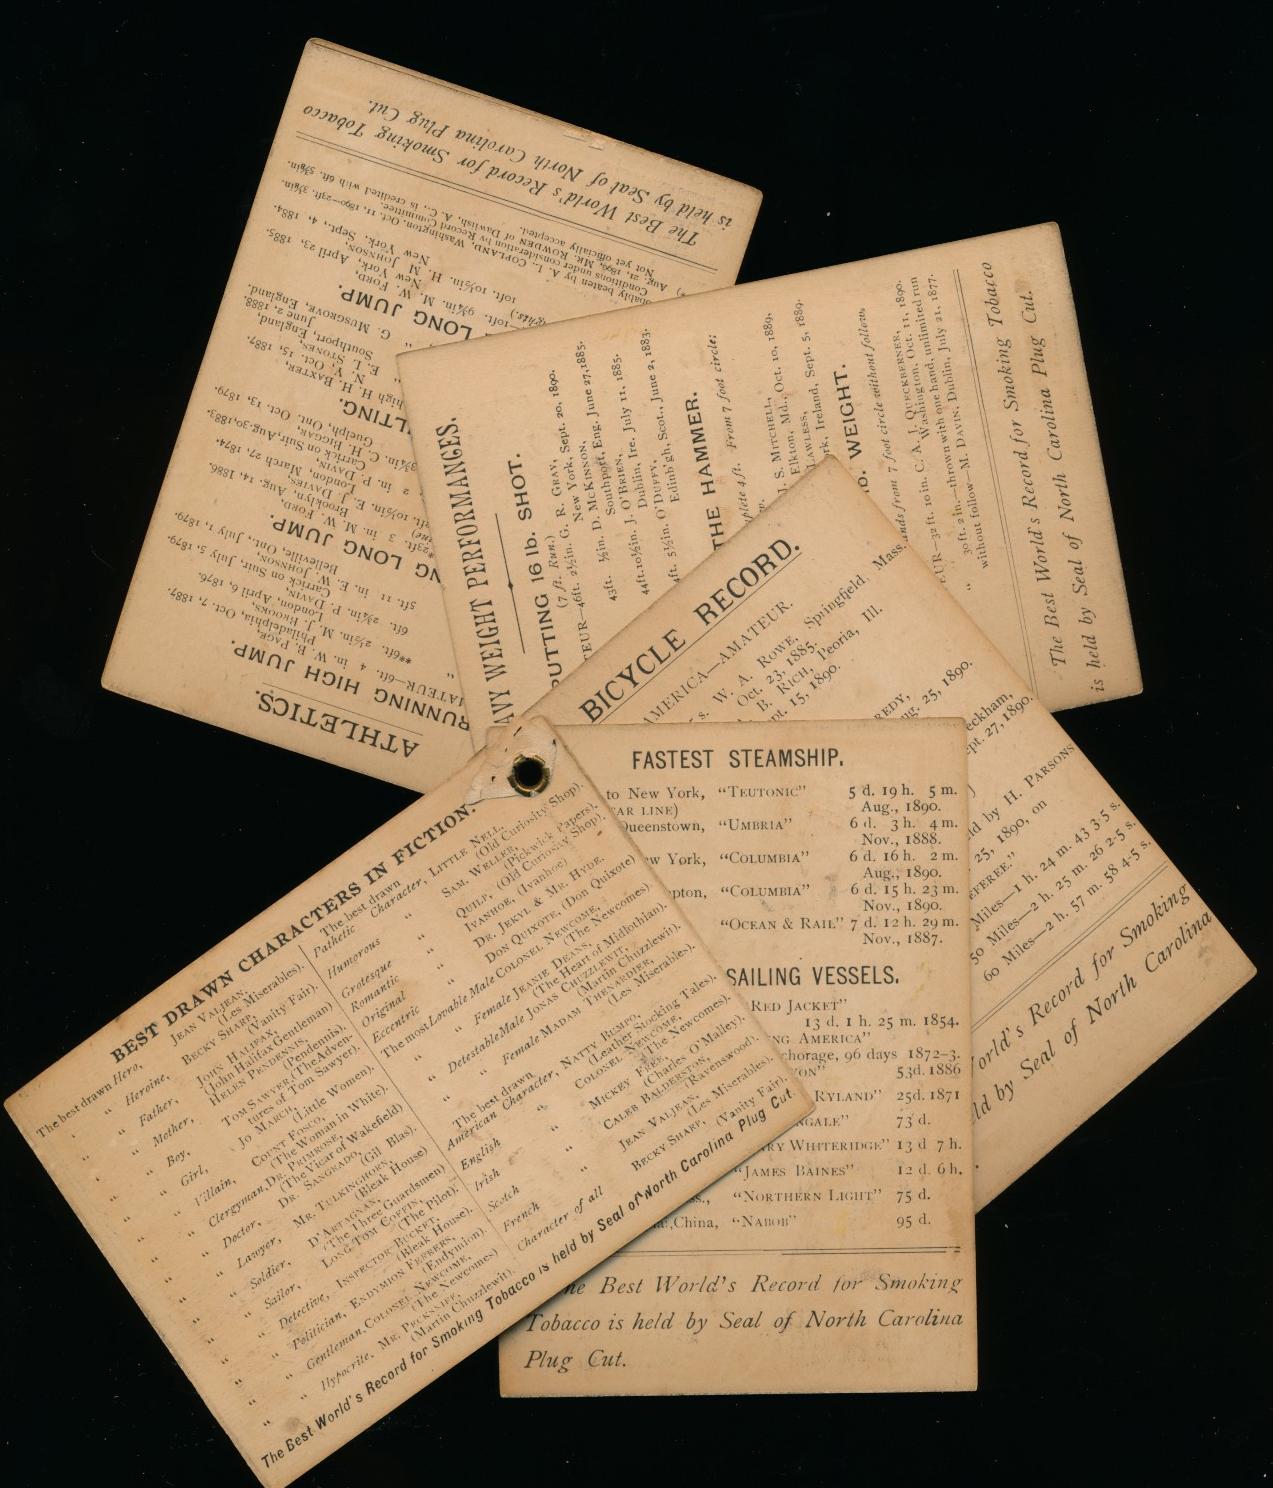 BEST DRAWN CHARACTERS IN FICTION.
The best drawn Hero, JEAN VALJEAN,
(Les Miserables).
" " Heroine, BECKY SHARP,
(Vanity Fair).
" " Father, JOHN HALIFAX,
(John Halifax Gentleman)
" " Mother, HELEN PENDENNIS,
(Pendennis).
" " Boy, TOM SAWYER, (The Adven-
tures of Tom Sawyer).
" " Girl, JO MARCH,
(Little Women).
" " Villain, COUNT FOSCO,
(The Woman in White).
" " Clergyman, DR. PRIMROSE,
(The Vicar of Wakefield)
" " Doctor, DR. SANGRADO,
(Gil Blas).
" " Lawyer, MR. TULKINGHORN,
(Bleak House)
" " Soldier, D'ARTAGNAN,
(The Three Guardsmen)
" " Sailor, LONG TOM COFFIN,
(The Pilot).
" " Detective, INSPECTOR BUCKET,
(Bleak House).
" " Politician, ENDYMION FERRERS,
(Endymion).
" " Gentleman, COLONEL NEWCOME,
(The Newcomes)
" " Hypocrite, MR. PECKSNIFF,
(Martin Chuzzlewit).
The best drawn
Pathetic Character, LITTLE NELL,
(Old Curiosity Shop).
Humorous " SAM. WELLER,
(Pickwick Papers).
Grotesque " QUILP, (Old Curiosity Shop).
Romantic " IVANHOE, (Ivanhoe)
Original " DR. JEKYL & MR. HYDE.
Eccentric " DON QUIXOTE, (Don Quixote)
The most Lovable Male COLONEL NEWCOME,
(The Newcomes).
" " Female JEANIE DEANS,
(The Heart of Midlothian).
" Detestable Male JONAS CHUZZLEWIT,
(Martin Chuzzlewit).
" " Female MADAM THENARDIER,
(Les Miserables).
The best drawn
American Character, NATTY BUMPO,
(Leather Stocking Tales).
English " COLONEL NEWCOME,
(The Newcomes).
Irish " MICKEY FREE,
(Charles O'Malley).
Scotch " CALEB BALDERSTON,
(Ravenswood).
French " JEAN VALJEAN,
(Les Miserables).
Character of all BECKY SHARP, (Vanity Fair).
The Best World's Record for Smoking Tobacco is held by Seal of North Carolina Plug Cut.
FASTEST STEAMSHIP.
to New York, "TEUTONIC" 5 d. 19 h. 5 m.
AR LINE) Aug., 1890.
Queenstown, "UMBRIA" 6 d. 3 h. 4 m.
Nov., 1888.
ew York, "COLUMBIA" 6 d. 16 h. 2 m.
Aug., 1890.
pton, "COLUMBIA" 6 d. 15 h. 23 m.
Nov., 1890.
"OCEAN & RAIL" 7 d. 12 h. 29 m.
Nov., 1887.
SAILING VESSELS.
RED JACKET"
13 d. 1 h. 25 m. 1854.
NG AMERICA"
chorage, 96 days 1872-3.
ON" 53d. 1886
RYLAND" 25d. 1871
NGALE" 73 d.
RY WHITERIDGE" 13 d 7 h.
"JAMES BAINES" 12 d. 6 h.
ss., "NORTHERN LIGHT" 75 d.
China, "NABOB" 95 d.
he Best World's Record for Smoking
Tobacco is held by Seal of North Carolina
Plug Cut.
BICYCLE RECORD.
AMERICA—AMATEUR.
s. W. A. ROWE, Springfield, Mass.
Oct. 23, 1885.
B. RICH, Peoria, Ill.
pt. 15, 1890.
REDY,
ug. 25, 1890.
eckham,
ept. 27, 1890.
ld by H. PARSONS
25, 1890, on
EFEREE."
Miles—1 h. 24 m. 43 3-5 s.
50 Miles—2 h. 25 m. 26 2-5 s.
60 Miles—2 h. 57 m. 58 4-5 s.
orld's Record for Smoking
ld by Seal of North Carolina
AVY WEIGHT PERFORMANCES.
PUTTING 16 lb. SHOT.
(7 ft. Run.)
TEUR—46ft. 2½in. G. R. GRAY,
New York, Sept. 20, 1890.
43ft. ½in. D. MCKINNON,
Southport, Eng. June 27, 1885.
44ft. 10½in. J. O'BRIEN,
Dublin, Ire. July 11, 1885.
ft. 5½in. O'DUFFY,
Edinb'gh, Scot., June 2, 1883.
THE HAMMER.
plete 4 ft. From 7 foot circle;
J. S. MITCHELL,
Elkton, Md., Oct. 10, 1889.
LAWLESS,
rk, Ireland, Sept. 5, 1889.
b. WEIGHT.
ands from 7 foot circle without follow.
EUR—32 ft. 10 in. C. A. J. QUECKBERNER,
Washington, Oct. 11, 1890.
" 30 ft. 2 in.—thrown with one hand, unlimited run
without follow—M. DAVIN, Dublin, July 21, 1877.
The Best World's Record for Smoking Tobacco
is held by Seal of North Carolina Plug Cut.
ATHLETICS.
RUNNING HIGH JUMP.
MATEUR—6ft. 4 in. W. B. PAGE,
Philadelphia, Oct. 7, 1887.
**6ft. 2½in. M. J. BROOKS,
London, April 6, 1876.
6ft. 2¾in. P. DAVIN,
Carrick on Suir, July 5, 1879.
5ft. 11 in. E. W. JOHNSON,
Belleville, Ont., July 1, 1879.
NG LONG JUMP.
*23ft. 3 in. M. W. FORD,
Brooklyn, Aug. 14, 1886.
ft. 10½in. E. J. DAVIES,
London, March 27, 1874.
2 in. P. DAVIN,
Carrick on Suir, Aug. 30, 1883.
3¾in. C. H. BIGGAR,
Guelph, Ont. Oct. 13, 1879.
ULTING.
high H. H. BAXTER,
N. Y. Oct. 15, 1887.
E. L. STONES,
Southport, England, June 2, 1888.
G. MUSGROVE, England.
LONG JUMP.
10ft. 9¾in. M. W. FORD,
New York, April 23, 1885.
10ft. 10½in. H. M. JOHNSON,
New York, Sept., 4, 1884.
obably beaten by A. L. COPLAND, Washington, Oct. 11, 1890—23ft. 3⅛in.
Conditions under consideration by Record Committee.
Aug. 21, 1890, MR. ROWDEN of Dawlish, A. C., is credited with 6ft. 5⅜in.
Not yet officially accepted.
The Best World's Record for Smoking Tobacco
is held by Seal of North Carolina Plug Cut.